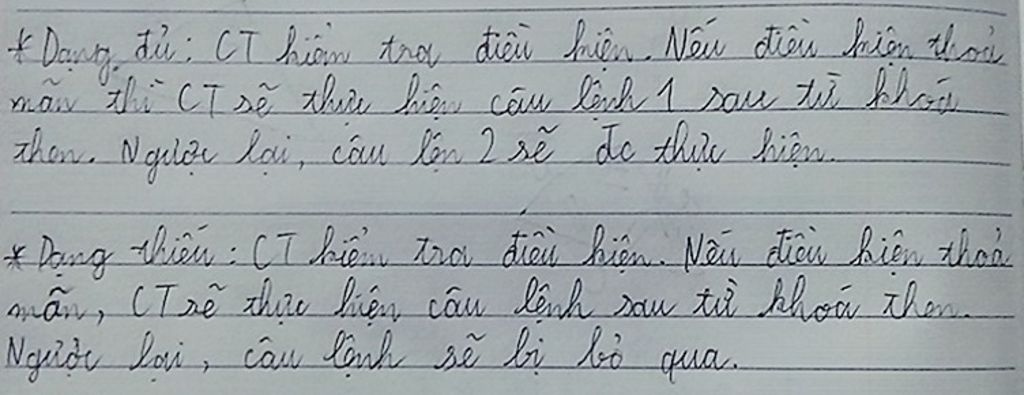 * Dạng đủ: CT kiểm tra điều kiện. Nếu điều kiện thoả
mãn thì CT sẽ thực hiện câu lệnh 1 sau từ khoá
then. Ngược lại, câu lện 2 sẽ đc thực hiện.
* Dạng thiếu: CT kiểm tra điều kiện. Nếu điều kiện thoả
mãn, CT sẽ thực hiện câu lệnh sau từ khoá then.
Ngược lại, câu lệnh sẽ bị bỏ qua.